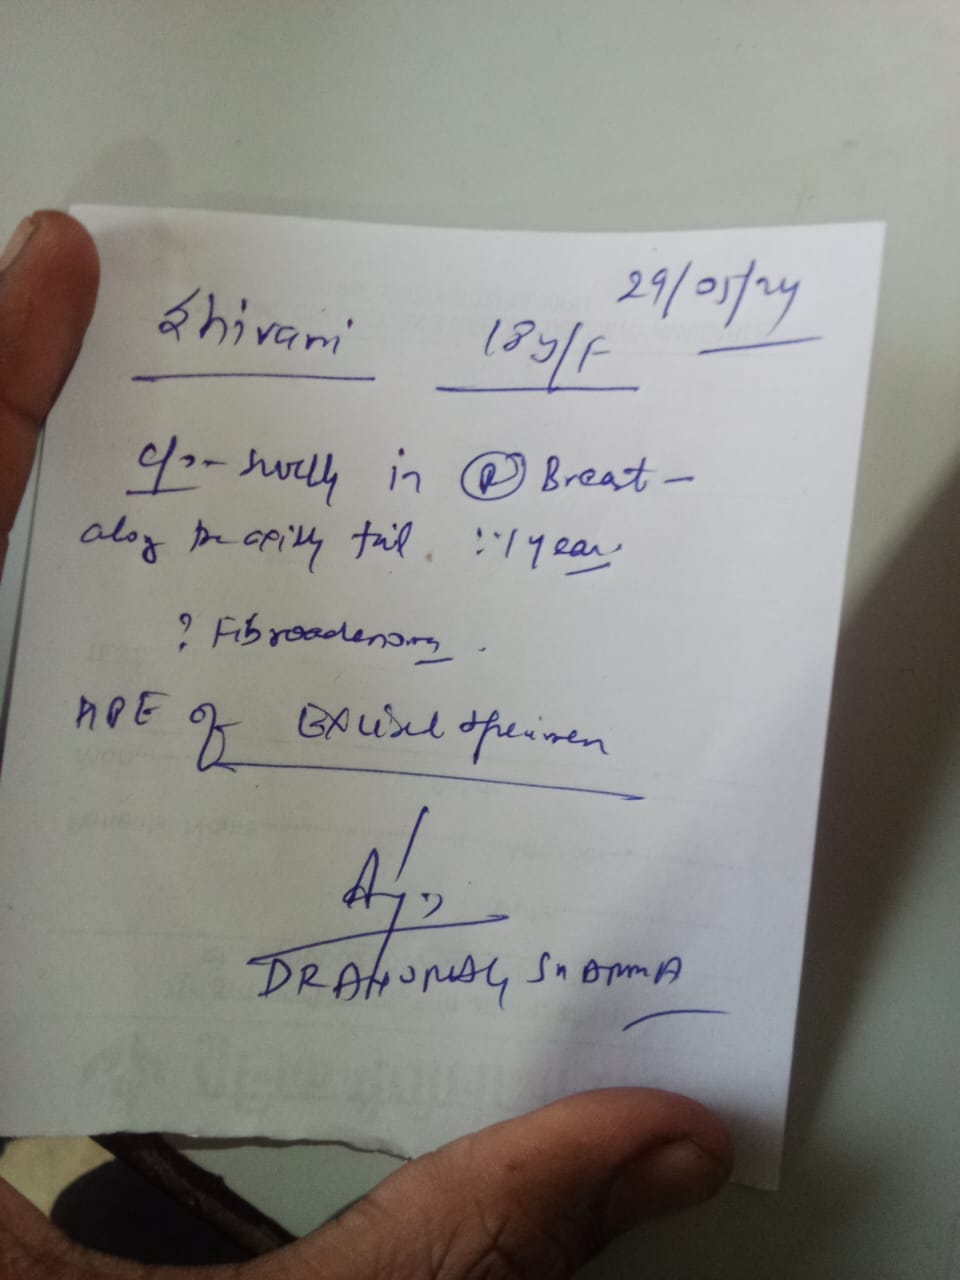 Shivani 18y/F 29/05/24
c/o - swelly in (R) Breast -
along the axilly tail :: 1 year
? Fibroadenoma.
HPE of Excised specimen
DR ANURAG SHARMA